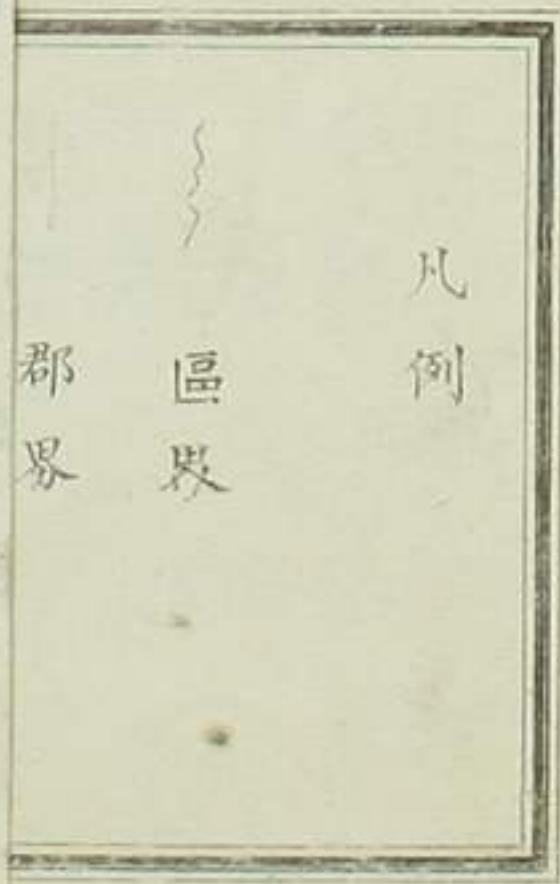 凡例
區界
郡界